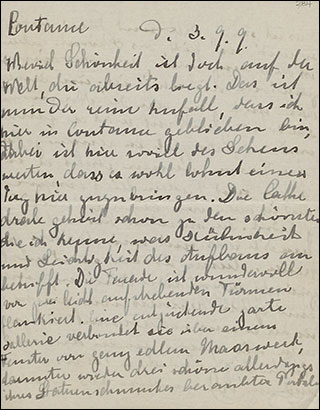 284
Coutance d. 3. 9. 9.
Wieviel Schönheit ist doch auf der
Welt, die abseits liegt. Das ist
nun der reine Zufall, dass ich
hier in Coutance geblieben bin,
dabei ist hier soviel des Sehens
werten dass es wohl lohnt einen
Tag hier zuzubringen. Die Cathe
drale gehört schon zu den schönsten
die ich kenne, was Kühnheit
und Leichtigkeit des Aufbaus an
betrifft. Die Facade ist wundervoll
von leicht aufstrebenden Türmen
flankiert. Eine entzückende zarte
Gallerie verbindet sie über einem
Fenster von ganz edlem Maaswerk,
darunter wieder drei schöne allerdings
ihres Statuenschmuckes beraubter Portale